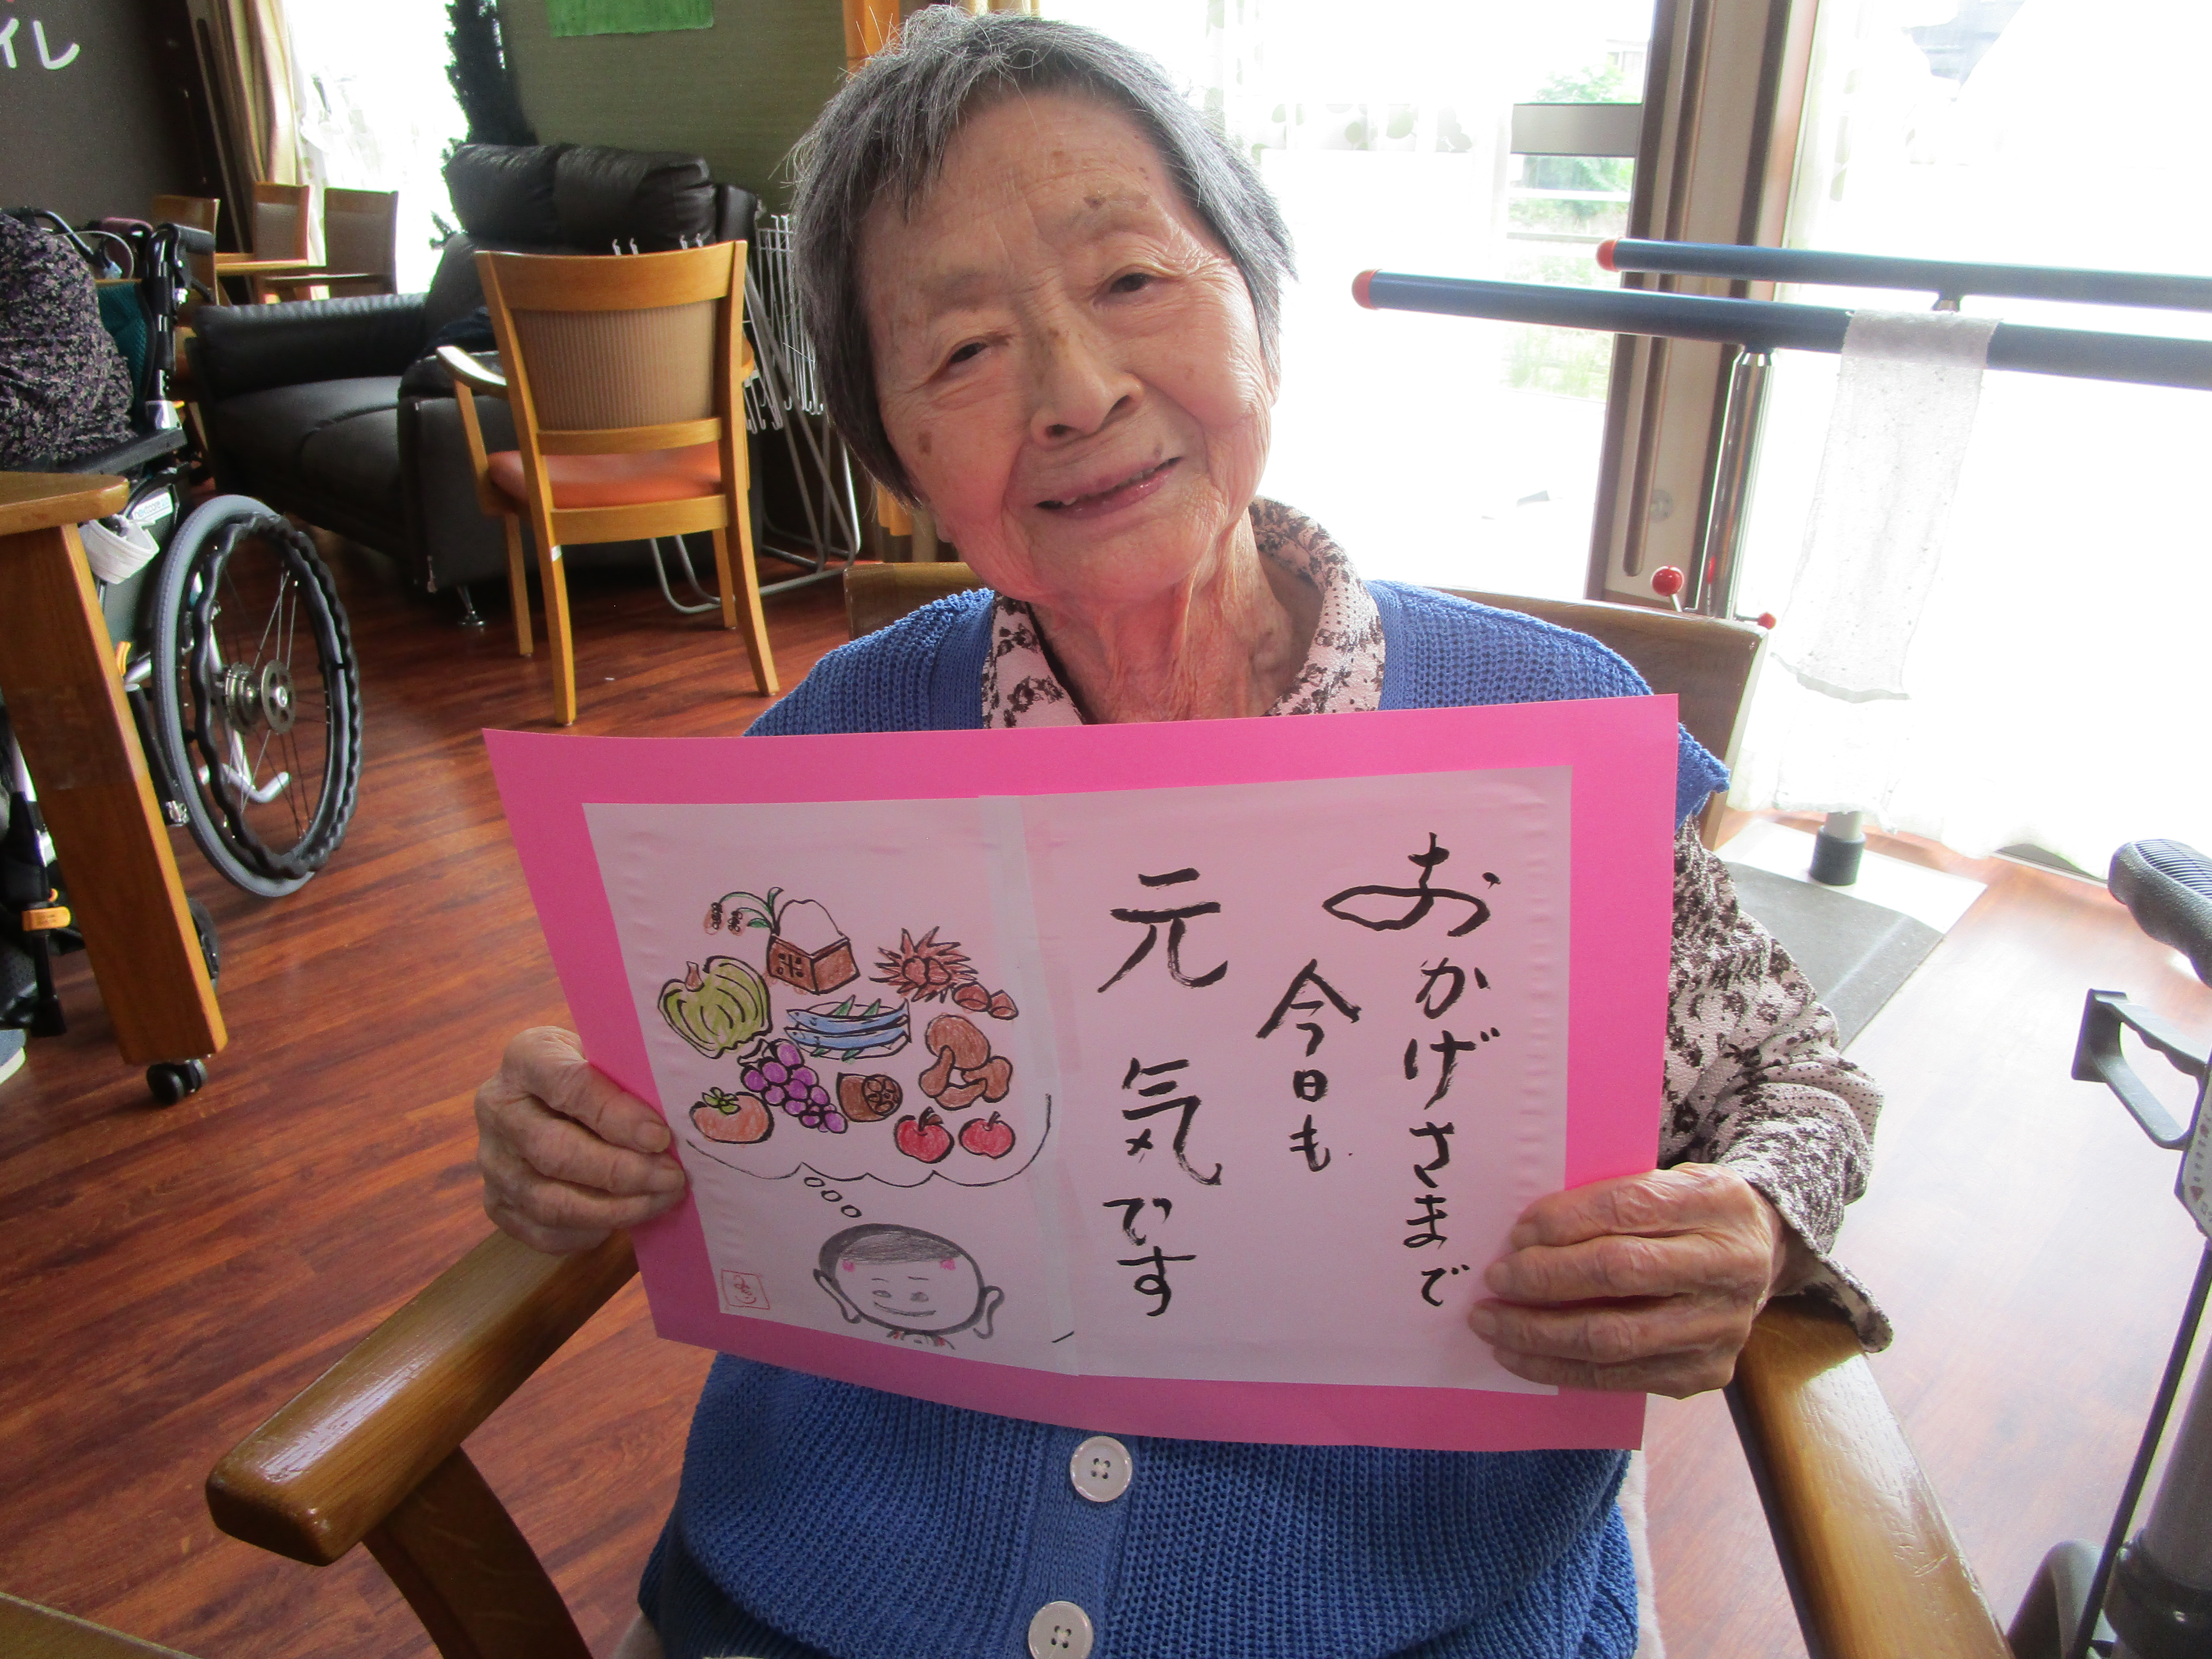 おかげさまで
今日も
元気です
米
イレ